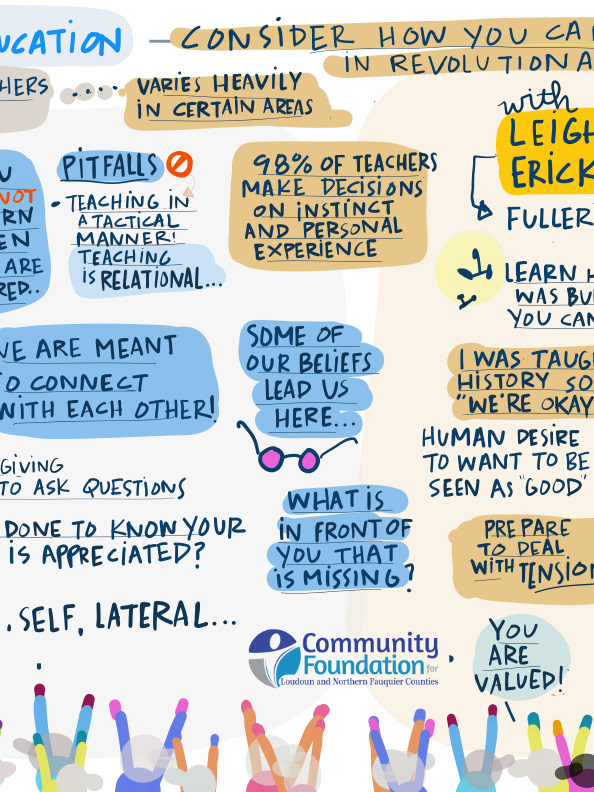 UCATION
CONSIDER HOW YOU CA
IN REVOLUTIONA
HERS
....
VARIES HEAVILY
IN CERTAIN AREAS
U
NOT
RN
EN
ARE
RED..
PITFALLS
• TEACHING IN
A TACTICAL
MANNER!
TEACHING
IS RELATIONAL...
98% OF TEACHERS
MAKE DECISIONS
ON INSTINCT
AND PERSONAL
EXPERIENCE
with
LEIGH
ERICK
FULLER
LEARN H
WAS BU
YOU CAN
VE ARE MEANT
TO CONNECT
WITH EACH OTHER!
SOME OF
OUR BELIEFS
LEAD US
HERE...
I WAS TAUG
HISTORY SO
"WE'RE OKAY
HUMAN DESIRE
TO WANT TO BE
SEEN AS "GOOD"
GIVING
TO ASK QUESTIONS
DONE TO KNOW YOUR
IS APPRECIATED?
WHAT IS
IN FRONT OF
YOU THAT
IS MISSING?
PREPARE
TO DEAL
WITH TENSION
. SELF, LATERAL...
Community
Foundation for
Loudoun and Northern Fauquier Counties
YOU
ARE
VALUED!